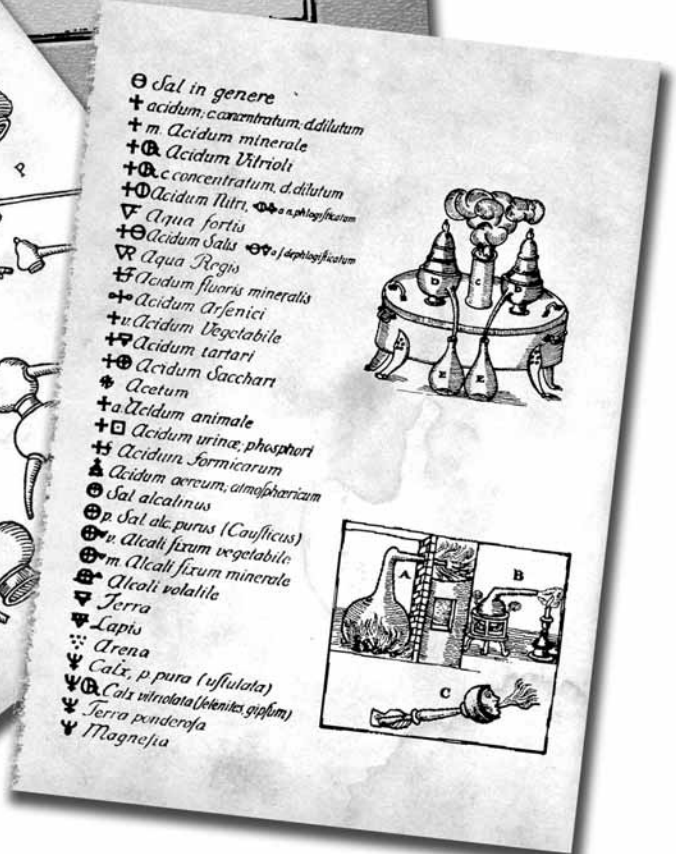 Sal in genere
acidum; c. concentratum; d. dilutum
m. Acidum minerale
Acidum Vitrioli
c concentratum, d. dilutum
Acidum Nitri, a n. phlogisticatum
Aqua fortis
Acidum Salis a ſ dephlogiſticatum
Aqua Regis
Acidum fluoris mineralis
Acidum Arſenici
v. Acidum Vegetabile
Acidum tartari
Acidum Sacchari
Acetum
a. Acidum animale
Acidum urinæ, phosphori
Acidum formicarum
Acidum aereum; atmoſphæricum
Sal alcalinus
p. Sal alc. purus (Cauſticus)
v. Alcali fixum vegetabile
m. Alcali fixum minerale
Alcali volatile
Terra
Lapis
Arena
Calx, p. pura (uſtulata)
Calx vitriolata (ſelenites, gipſum)
Terra ponderoſa
Magneſia
D C
E E
A B
C
P